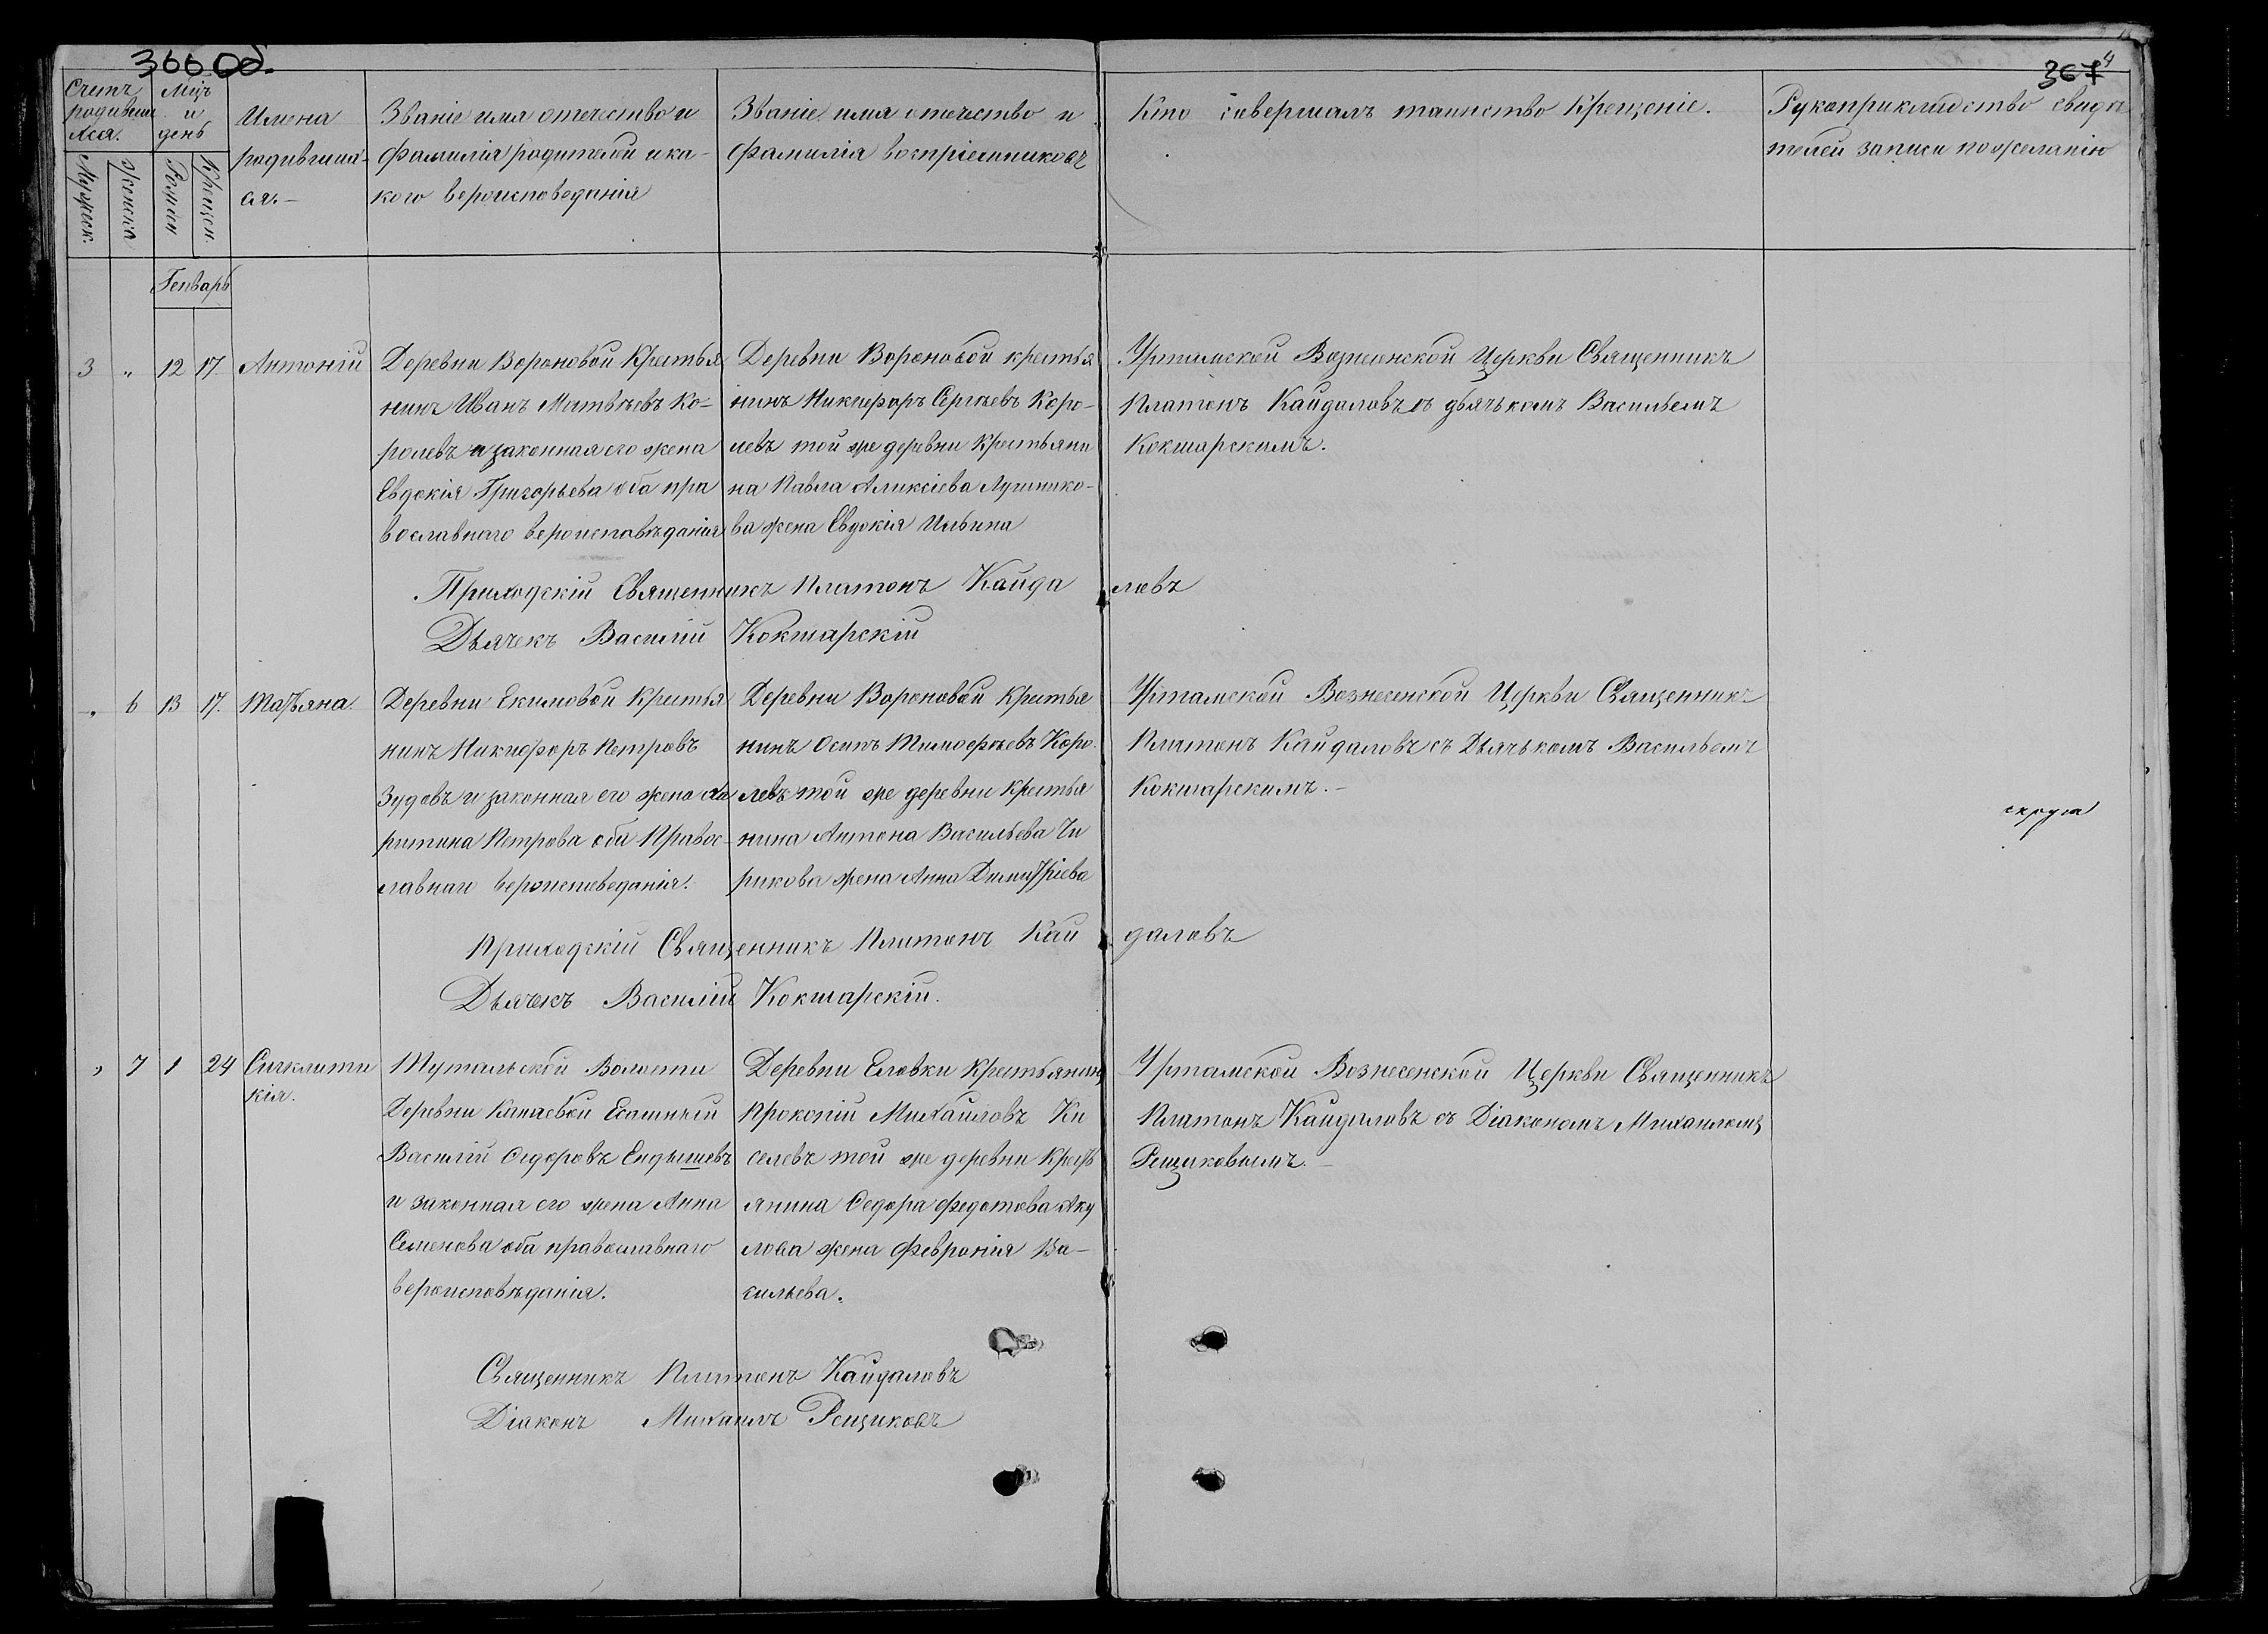 366 об.
367
4
Счетъ
родивши
хся.
Мцъ
и
день
Мужеск.
женска
Рожден
Крещен.
Имена
родивших-
ся.-
Званіе имя отечество и
фамилія родителей и ка-
кого вероисповеданія
Званіе имя отечество и
фамилія воспріемниковъ
Кто совершалъ таинство Крещеніе.
Рукоприкладство свиде
телей записи по желанію
Генварь
3 " 12 17 Антоній
Деревни Вороновой Крестья
нинъ Иванъ Матвѣевъ Ко-
ролевъ и законная его жена
Евдокія Григорьева оба пра
вославнаго вероисповѣданія
Деревни Вороновой крестья
нинъ Никифоръ Сергѣевъ Коро-
левъ той же деревни Крестьяни
на Павла Аликсіева Лушнико-
ва жена Евдокія Ильина
Уртамской Вознесенской Церкви Священникъ
Платонъ Кайдаловъ съ дьячькомъ Васильемъ
Кокшарскимъ.
Приходскій Священникъ Платонъ Кайда ловъ
Дьячекъ Василій Кокшарскій
" 6 13 17. Татьяна.
Деревни Екимовой Крестья
нинъ Никифоръ Петровъ
Зудовъ и законная его жена Ха
ритина Петрова оба Правос-
лавнаго вероисповеданія.
Деревни Вороновой Крестья
нинъ Осипъ Тимофѣевъ Коро-
левъ той же деревни Крестья
нина Антона Васильева Чи
рикова жена Анна Димитріева
Уртамской Вознесенской Церкви Священникъ
Платонъ Кайдаловъ съ Дьячькомъ Васильемъ
Кокшарскимъ.-
Приходскій Священникъ Платонъ Кай даловъ
Дьячекъ Василій Кокшарскій.
" 7 1 24 Сигклити
кія.
Тутальской Волости
Деревни Капаевой Есашный
Василій Сидоровъ Ендышевъ
и законная его жена Анна
Семенова оба православнаго
вероисповѣданія.
Деревни Еловки Крестьянинъ
Прокопій Михайловъ Ки
селевъ той же деревни Крестъ
янина Сидора Федотова Аку
лова жена Февронія Ва-
сильева.
Уртамской Вознесенской Церкви Священникъ
Платонъ Кайдаловъ съ Діакономъ Михаиломъ
Рещиковымъ.-
Священникъ Платонъ Кайдаловъ
Діаконъ Михаилъ Рещиковъ